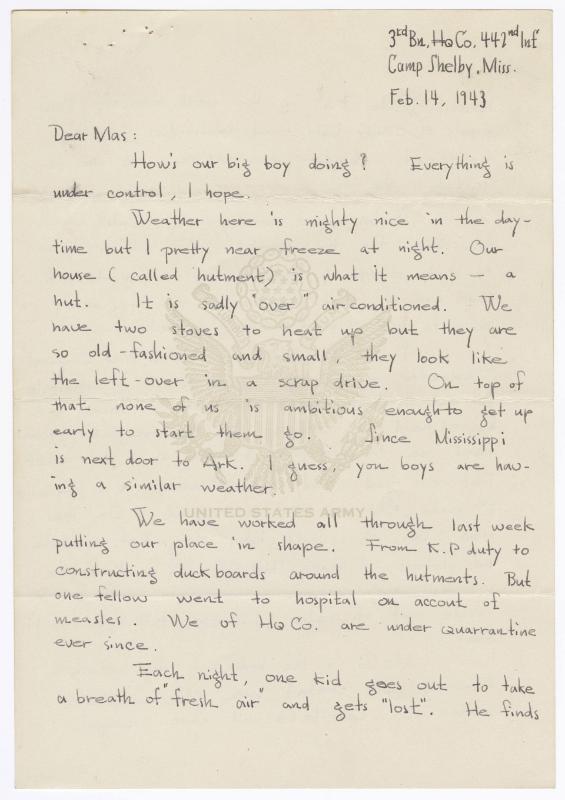 3rd Bn, Hq Co. 442nd Inf
Camp Shelby, Miss.
Feb. 14, 1943
Dear Mas:
How's our big boy doing? Everything is
under control, I hope.
Weather here is mighty nice in the day-
time but I pretty near freeze at night. Our
house (called hutment) is what it means — a
hut. It is sadly "over" air-conditioned. We
have two stoves to heat up but they are
so old-fashioned and small, they look like
the left-over in a scrap drive. On top of
that none of us is ambitious enough to get up
early to start them go. Since Mississippi
is next door to Ark. I guess, you boys are hav-
ing a similar weather.
UNITED STATES ARMY
We have worked all through last week
putting our place in shape. From K.P duty to
constructing duck boards around the hutments. But
one fellow went to hospital on accout of
measles. We of Hq Co. are under quarrantine
ever since.
Each night, one kid goes out to take
a breath of "fresh air" and gets "lost". He finds